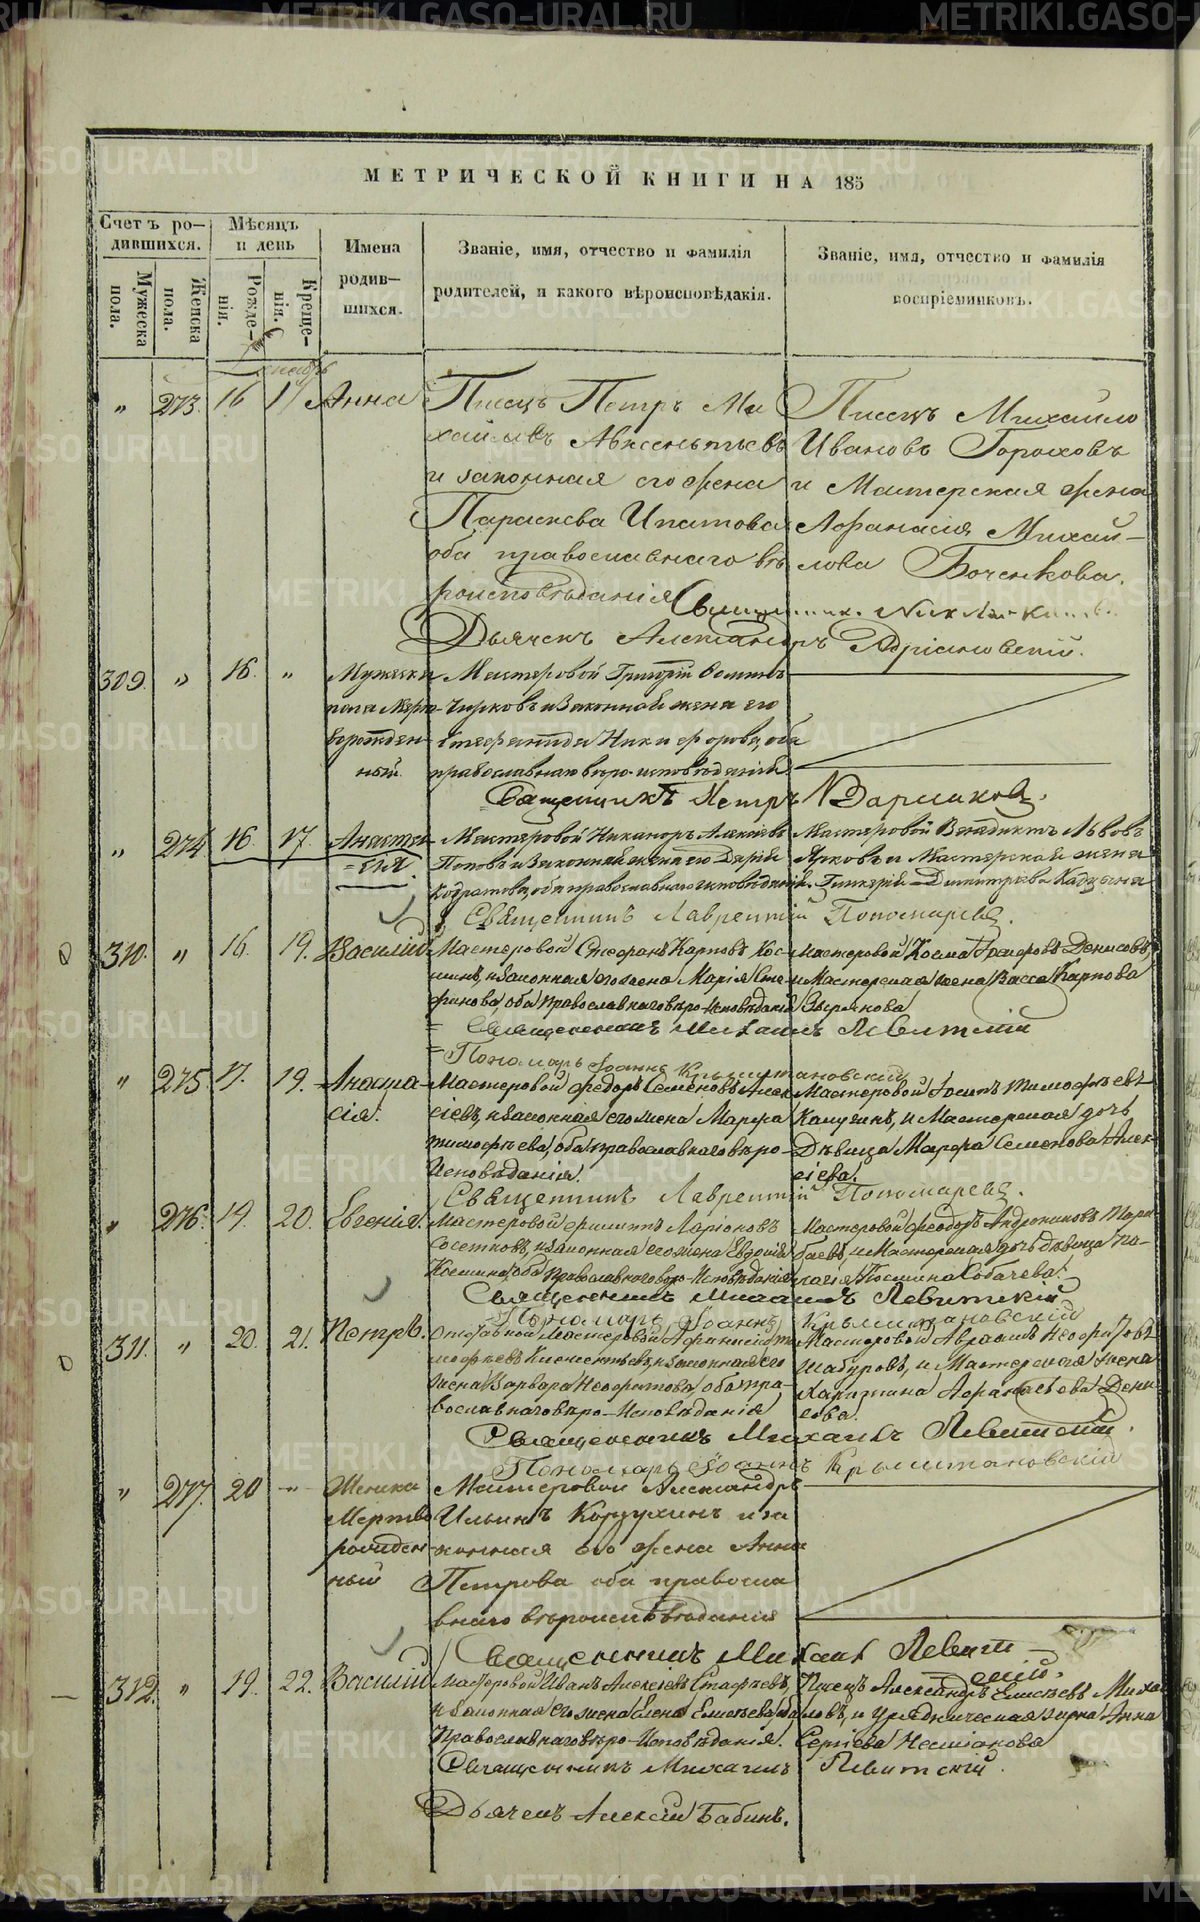 METRIKI.GASO-URAL.RU
МЕТРИЧЕСКОЙ КНИГИ НА 185
Счетъ ро-
дившихся.
Мужеска
пола.
Женска
пола.
Мѣсяцъ
и день
Рожде-
нія.
Креще-
нія.
Имена
родив-
шихся.
Званіе, имя, отчество и фамилія
родителей, и какого вѣроисповѣданія.
Званіе, имя, отчество и фамилія
воспріемниковъ.
Декабрь
„ 273. 16 17 Анна
Писецъ Петръ Ми
хайловъ Авксентьевъ
и законная его жена
Параскева Ипатова
оба православнаго вѣ
роисповѣданія
Писецъ Михайло
Ивановъ Гороховъ
и Мастерская жена
Афанасія Михай-
лова Боченкова.
Священник.
Дьячекъ Александръ Адріановскій.
309. „ 16. „ Мужеска
пола Мертв
ворожден-
ный.
Мастеровой Григорій Фоминъ
Чирковъ и Законная жена его
Никифорова, оба
православнаго вѣро-исповѣданія
Священникъ Петръ
„ 274 16. 17. Анастас
=сія.
Мастеровой Никаноръ Алексѣевъ
Поповъ и Законная жена его Дарія
Кодратова, оба православнаго исповѣданія.
Мастеровой Венедиктъ Львовъ
Ярковъ и Мастерская жена
Димитріева
Священникъ Лаврентій Пономаревъ.
310. „ 16. 19. Василій
Мастеровой Стефанъ Карповъ Кос-
минъ, и законная его жена Марія Сте-
фанова, оба православнаго вѣро-исповѣданія
Мастеровой Косма Денисовъ,
и Мастерская жена Васса Карпова
Зырянова
Священникъ Михаилъ Левитскій
Пономарь Іоаннъ Крыштановскій
„ 275. 17. 19. Анаста-
сія.
Мастеровой Федоръ Семеновъ Алек
сіевъ, и законная его жена Марфа
Тимофѣева, оба православнаго вѣро-
Исповѣданія.
Мастеровой Осипъ Тимофѣевъ
Калугинъ, и Мастерская дочь
Дѣвица Марфа Семенова Алек-
сіева.
Священникъ Лаврентій Пономаревъ.
„ 276. 19. 20. Евгенія.
Мастеровой Филиппъ Ларіоновъ
и законная его жена Евдокія
Космина, оба православнаго вѣро-Исповѣданія
Мастеровой Феодоръ Андрониковъ
и Мастерская дочь дѣвица Пе-
лагія Космина Собачева.
Священникъ Михаилъ Левитскій
Пономарь Іоаннъ Крыштановскій
311. „ 20. 21. Петръ.
Отставной Мастеровой Афанасій Ти
мофѣевъ Климентьевъ, и законная его
жена Варвара Неофитова, оба пра-
вославнаго вѣро-Исповѣданія
Мастеровой Авраамъ Неофитовъ
Шабуровъ, и Мастерская жена
Харитина Афанасьева Дени-
сова.
Священникъ Михаилъ Левитскій.
Пономарь Іоаннъ Крыштановскій
„ 277. 20 „ Женска
Мертво
рожден
ный
Мастеровой Александръ
Ильинъ Кожухинъ и за
конная его жена Анна
Петрова оба правосла
внаго вѣроисповѣданія
Священникъ Михаилъ Левит-
скій.
312. „ 19. 22. Василій
Мастеровой Иванъ Алексіевъ Стафѣевъ,
и законная его жена Елена Елисѣева, оба
Православнаго вѣро-Исповѣданія.
Писецъ Александръ Елисѣевъ Миха
ловъ, и Урядническая жена Анна
Сергіева
Священникъ Михаилъ Левитскій.
Дьячекъ Алексій Бабинъ.